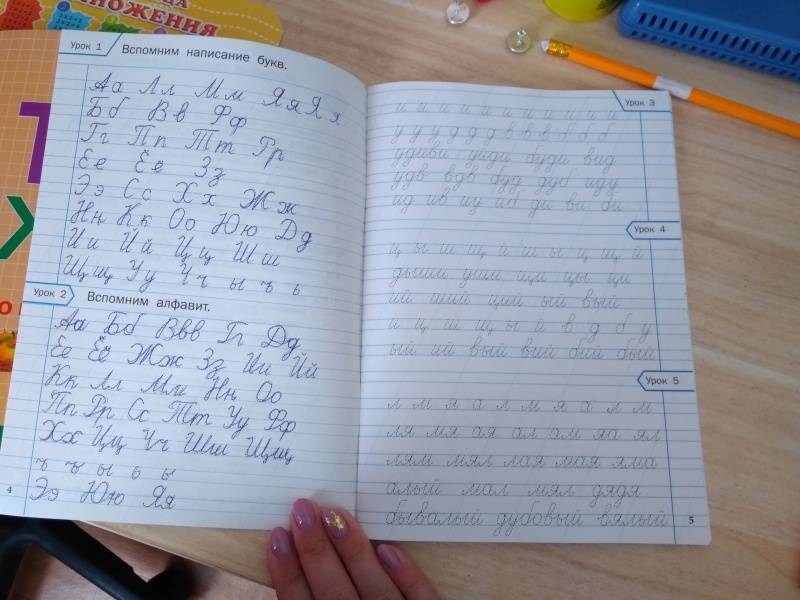 ЦА
НОЖЕНИЯ
Урок 1 Вспомним написание букв.
Аа Лл Мм ЯяЯя
Бб Вв Фф
Гг Пп Тт Рр
Ее Ёё Зз
Ээ Сс Хх Жж
Нн Кк Оо Юю Дд
Ии Йй Цц Шш
Щщ Уу Чч ы ъ ь
Урок 2 Вспомним алфавит.
Аа Бб Ввв Гг Дд
Ее Ёё Жж Зз Ии Йй
Кк Лл Мм Нн Оо
Пп Рр Сс Тт Уу Фф
Хх Цц Чч Шш Щщ
ъ ъ ы ь ы
Ээ Юю Яя
4
Урок 3
и и и и и и и и и и и
у у д д д д в в в б б б
удиви уйди буди вид
удв вдв буд дуб иду
ид ив из иб ди ви би
Урок 4
ц ы ш щ й ш ы ц щ й
дыши уши щи цы ци
ий ший щий ый вый
й ц ш щ ы й в д б у
ый ий вый вий бий бый
Урок 5
л м я а л м я а л м
ля мя ая ал ам яа ял
лям мял лая мая яма
алый мал мял дядя
бывалый дубовый вялый
5